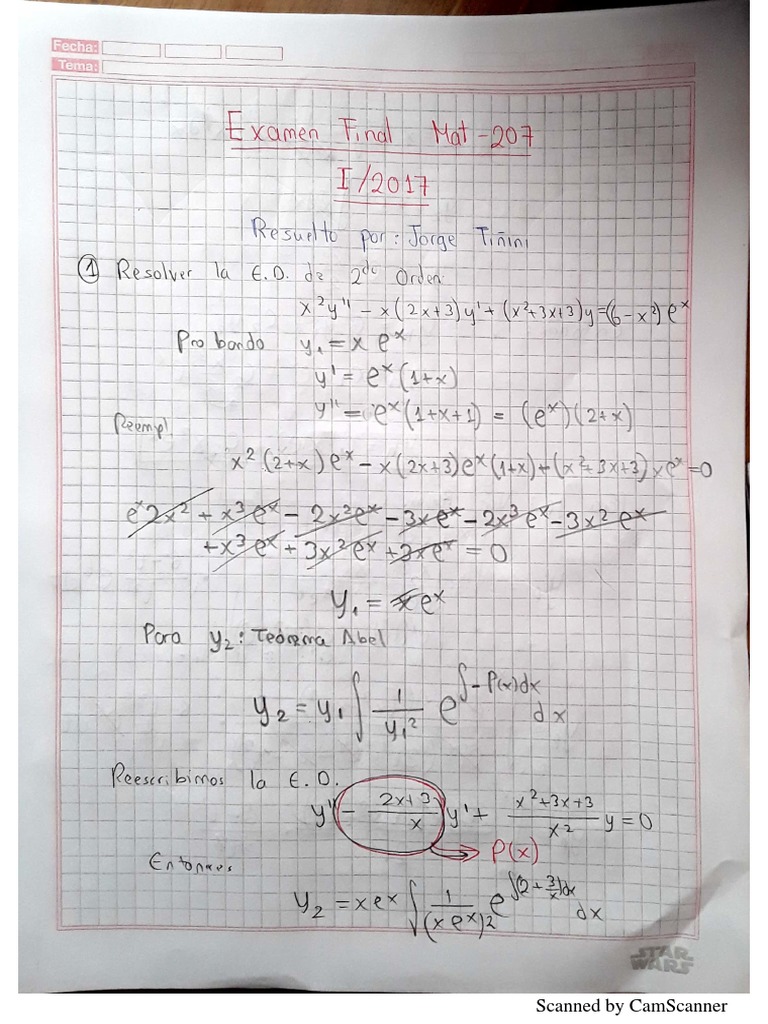 Fecha:
Tema:
Examen Final Mat-207
I/2017
Resuelto por: Jorge Tiñini
① Resolver la E.D. de 2do Orden:
x²y'' - x(2x+3)y' + (x²+3x+3)y = (6-x²)e^x
Probando y₁ = x e^x
y' = e^x(1+x)
y'' = e^x(1+x+1) = (e^x)(2+x)
Reempl
x²(2+x)e^x - x(2x+3)e^x(1+x) + (x²+3x+3)xe^x = 0
e^x2x² + x³e^x - 2x²e^x - 3xe^x - 2x³e^x - 3x²e^x
+x³e^x + 3x²e^x + 3xe^x = 0
y₁ = xe^x
Para y₂: Teorema Abel
y₂ = y₁ ∫ 1/y₁² e^∫-P(x)dx dx
Reescribimos la E.D.
y'' - (2x+3)/x y' + (x²+3x+3)/x² y = 0
P(x)
Entonces
y₂ = xe^x ∫ 1/(xe^x)² e^∫(2+3/x)dx dx
STAR WARS
Scanned by CamScanner